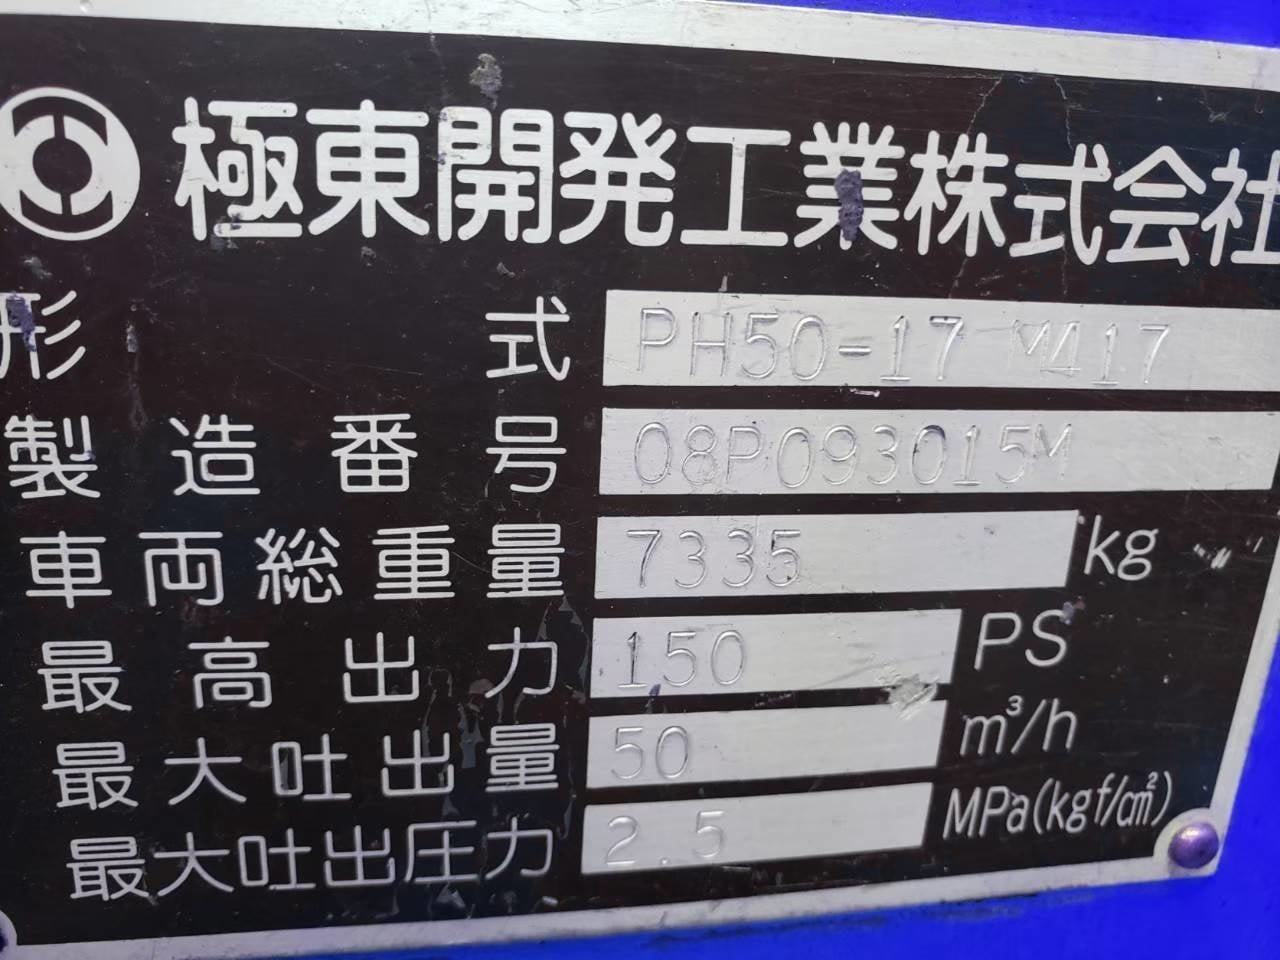 極東開発工業株式会社
形式 PH50-17 M417
製造番号 08P093015M
車両総重量 7335 kg
最高出力 150 PS
最大吐出量 50 m³/h
最大吐出圧力 2.5 MPa(kgf/cm²)